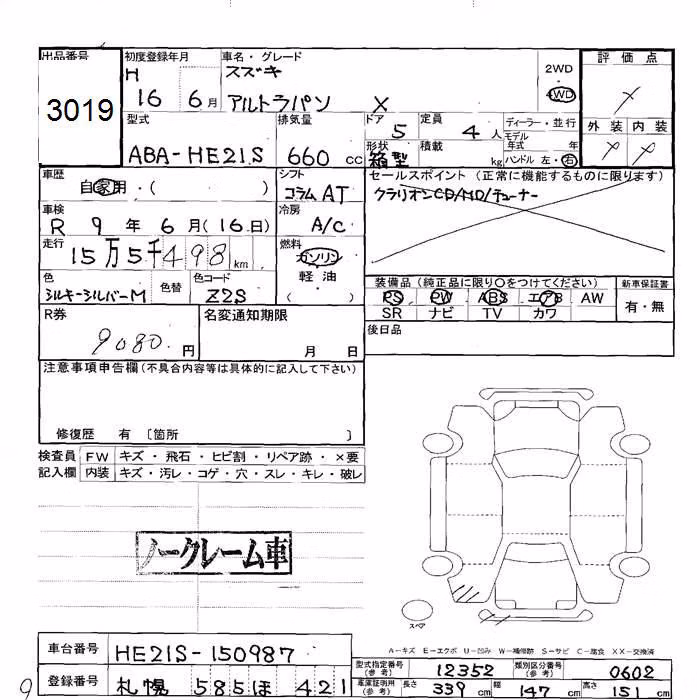 出品番号 初度登録年月 車名・グレード 評価点
3019 H 16 6月 スズキ アルトラパン X 2WD 4WD
型式 排気量 ドア 定員 ディーラー・並行 外装 内装
ABA-HE21S 660 cc 5 4 人 モデル年式 年
形状 箱型 積載 kg ハンドル 左・右
車歴 自家用・( ) シフト コラムAT セールスポイント (正常に機能するものに限ります)
車検 R 9 年 6 月 (16日) 冷房 A/C クラリオンCD/MD/チューナー
走行 15万5千498 km 燃料 ガソリン 軽油 ( )
色 シルキーシルバーM 色替 色コード Z2S
装備品 (純正品に限り○をつけてください) 新車保証書
PS PW ABS エアB AW 有・無
SR ナビ TV カワ
R券 9080 円 名変通知期限 月 日 後日品
注意事項申告欄 (不具合内容等は具体的に記入して下さい)
修復歴 有 〔箇所 〕
検査員 FW キズ・飛石・ヒビ割・リペア跡・×要
記入欄 内装 キズ・汚レ・コゲ・穴・スレ・キレ・破レ
ノークレーム車
スペア
A-キズ E-エクボ U-凹み W-補修跡 S-サビ C-腐食 XX-交換済
車台番号 HE21S-150987
型式指定番号 (参考) 12352 類別区分番号 (参考) 0602
登録番号 札幌 585 ほ 421
車庫証明用 (参考) 長さ 339 cm 幅 147 cm 高さ 151 cm
9